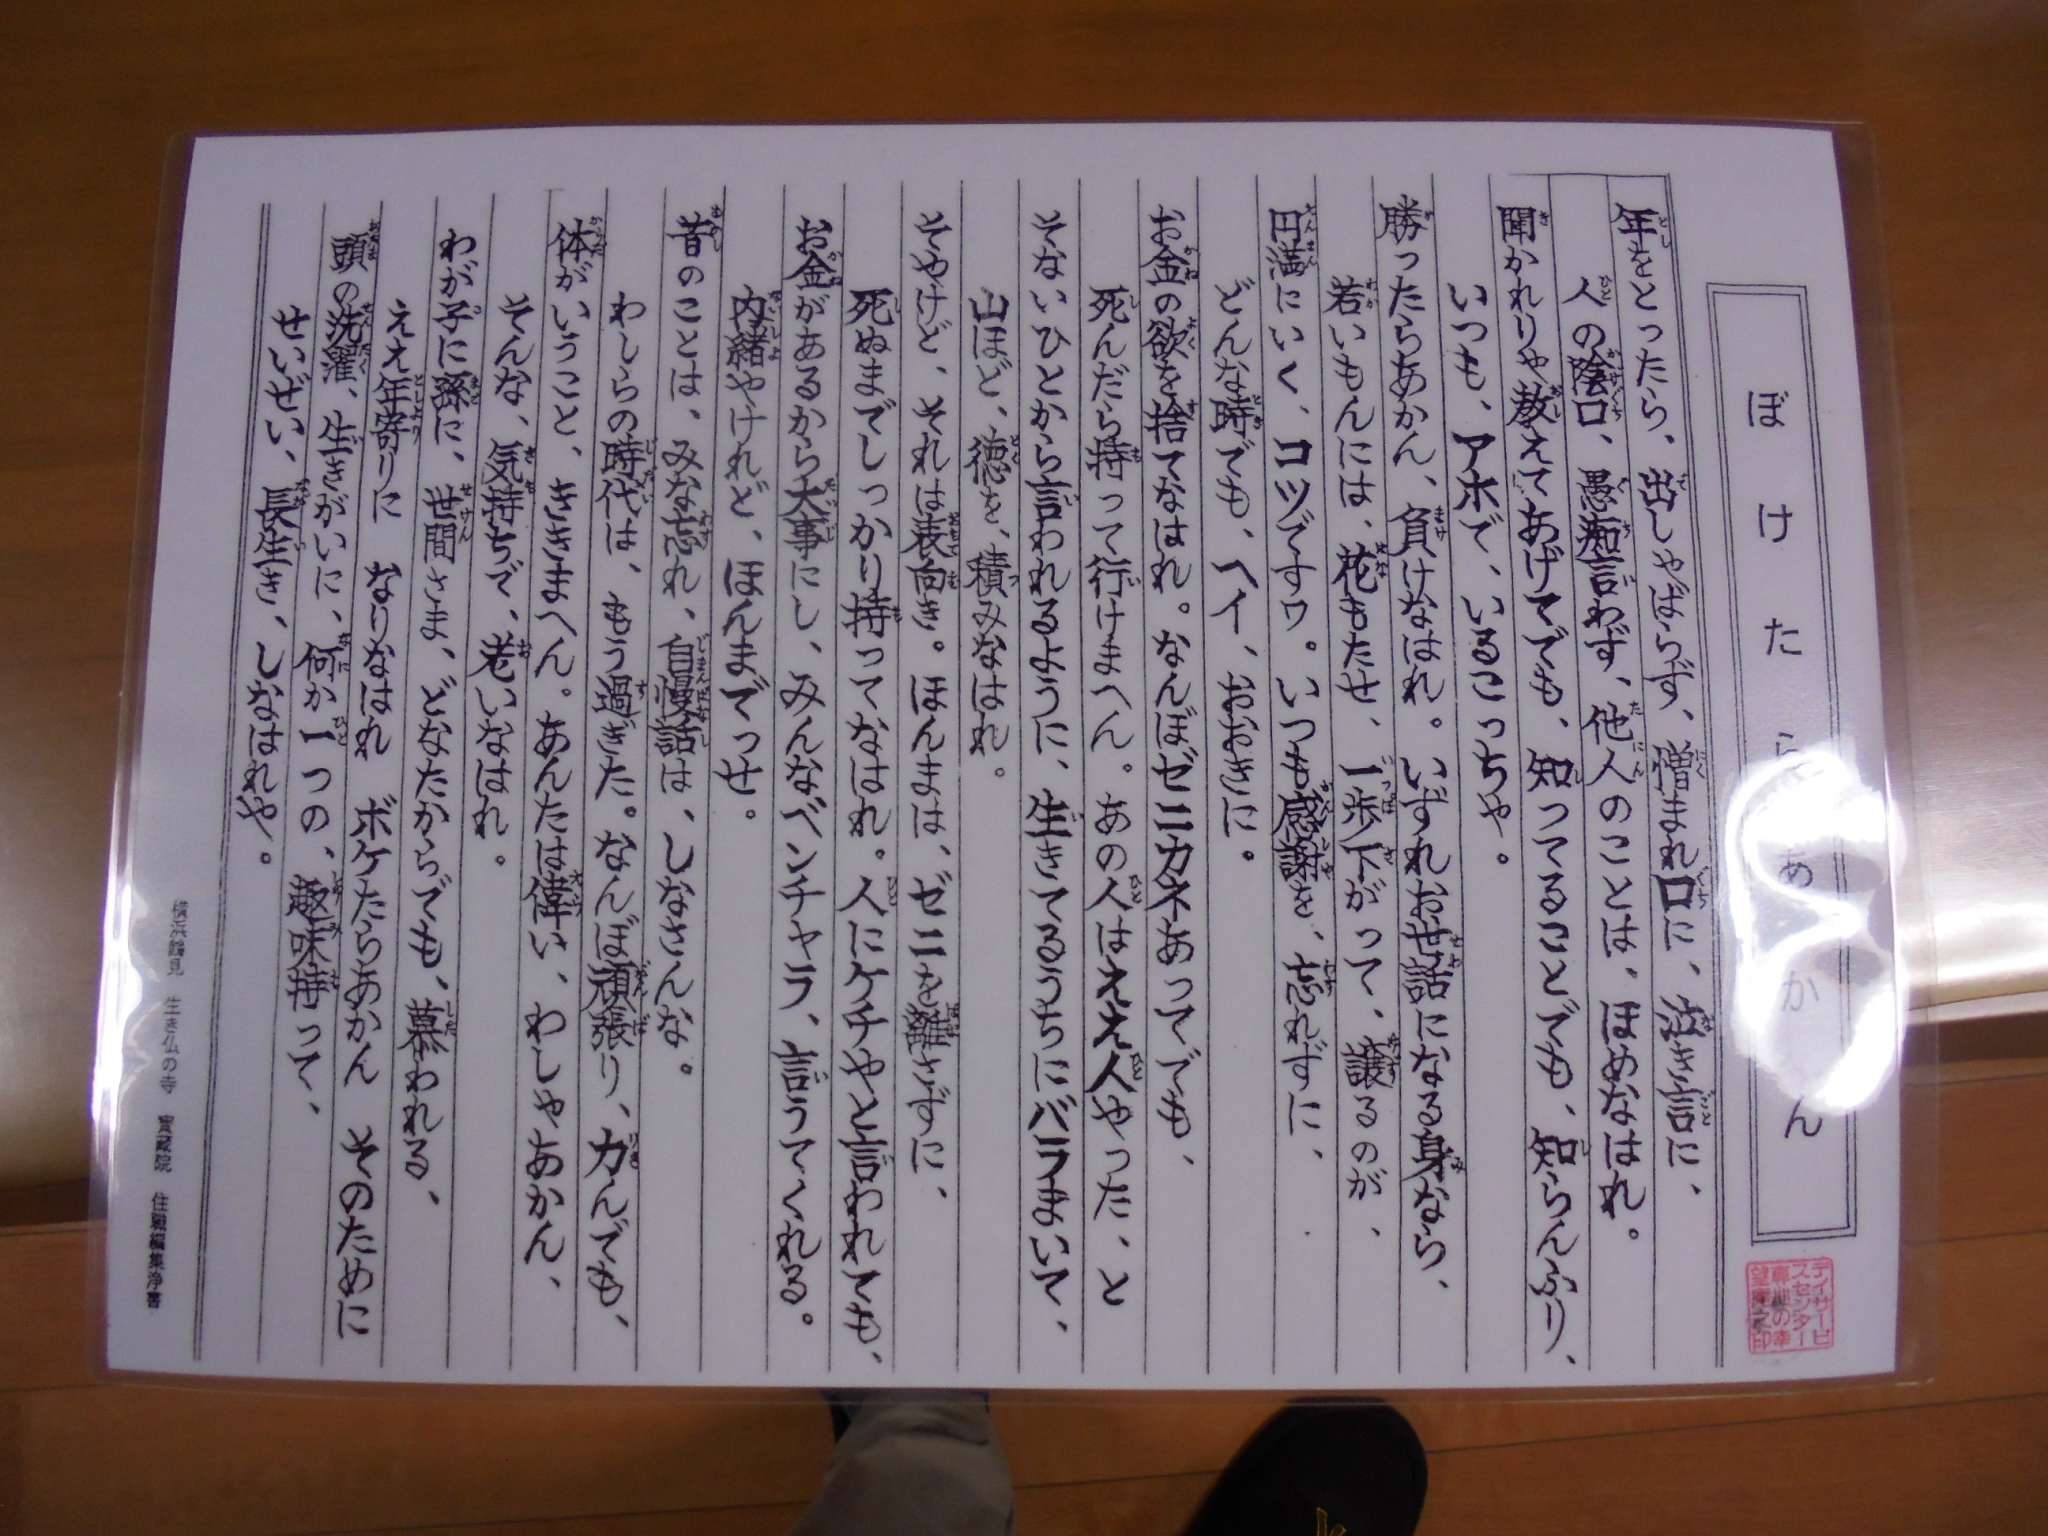 ぼけたらあかん
年をとったら、出しゃばらず、憎まれ口に、泣き言に、
人の陰口、愚痴言わず、他人のことは、ほめなはれ。
聞かれりゃ教えてあげてでも、知ってることでも、知らんふり、
いつも、アホで、いるこっちゃ。
勝ったらあかん、負けなはれ。いずれお世話になる身なら、
若いもんには、花もたせ、一歩下がって、譲るのが、
円満にいく、コツですワ。いつも感謝を、忘れずに、
どんな時でも、ヘイ、おおきに。
お金の欲を捨てなはれ。なんぼゼニカネあってでも、
死んだら持って行けまへん。あの人はええ人やった、と
そないひとから言われるように、生きてるうちにバラまいて、
山ほど、徳を、積みなはれ。
そやけど、それは表向き。ほんまは、ゼニを離さずに、
死ぬまでしっかり持ってなはれ。人にケチやと言われても、
お金があるから大事にし、みんなベンチャラ、言うてくれる。
内緒やけれど、ほんまでっせ。
昔のことは、みな忘れ、自慢話は、しなさんな。
わしらの時代は、もう過ぎた。なんぼ頑張り、力んでも、
体がいうこと、ききまへん。あんたは偉い、わしゃあかん、
そんな、気持ちで、老いなはれ。
わが子に孫に、世間さま、どなたからでも、慕われる、
ええ年寄りに なりなはれ ボケたらあかん そのために
頭の洗濯、生きがいに、何か一つの、趣味持って、
せいぜい、長生き、しなはれや。
横浜鶴見 生き仏の寺 寳蔵院 住職編集浄書
デイサービ
スセンター